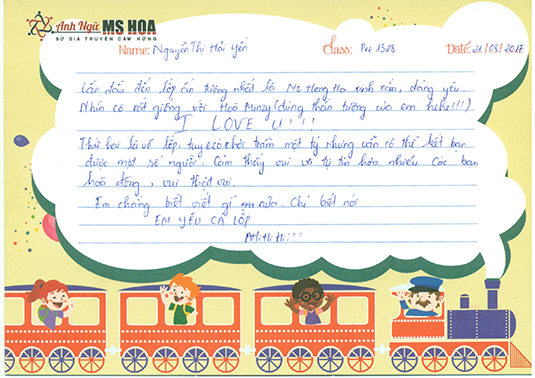 Anh Ngữ MS HOA
SỨ GIẢ TRUYỀN CẢM HỨNG
Name: Nguyễn Thị Hải Yến Class: Pre 1358 Date: 21/08/2017
Lần đầu đến lớp ấn tượng nhất là Ms. Hong Ha xinh xắn, đáng yêu.
Nhìn cô rất giống với Hoà Minzy (đúng thần tượng của em hehe!!!)
I LOVE U!!!
Thứ hai là về lớp, tuy có hơi trầm một tý nhưng vẫn có thể kết bạn
được một số người. Cảm thấy vui và tự tin hơn nhiều. Các bạn
hoà đồng, vui thật vui.
Em chẳng biết viết gì nữa. Chỉ biết nói
EM YÊU CẢ LỚP
Hihihi!!!